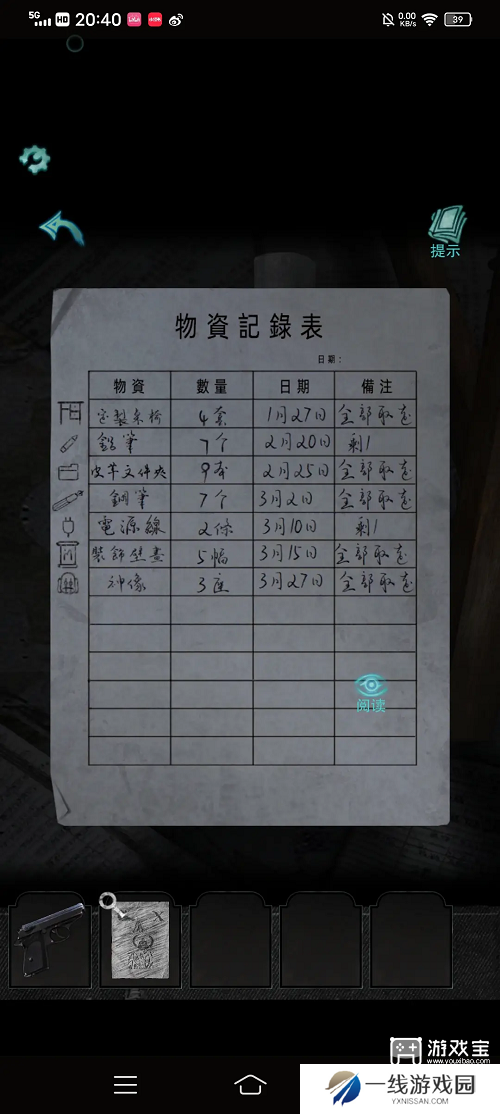 5G HD 20:40 0.00 KB/s 39
提示
物資記錄表
日期：
物資 數量 日期 備注
定製桌椅 4套 1月27日 全部取走
鉛筆 7个 2月20日 剩1
皮革文件夾 9本 2月25日 全部取走
鋼筆 7个 3月2日 全部取走
電源線 2條 3月10日 剩1
裝飾壁畫 5幅 3月15日 全部取走
神像 3座 3月27日 全部取走
阅读
游戏宝
www.youxibao.com
一线游戏园
YXNISSAN.COM